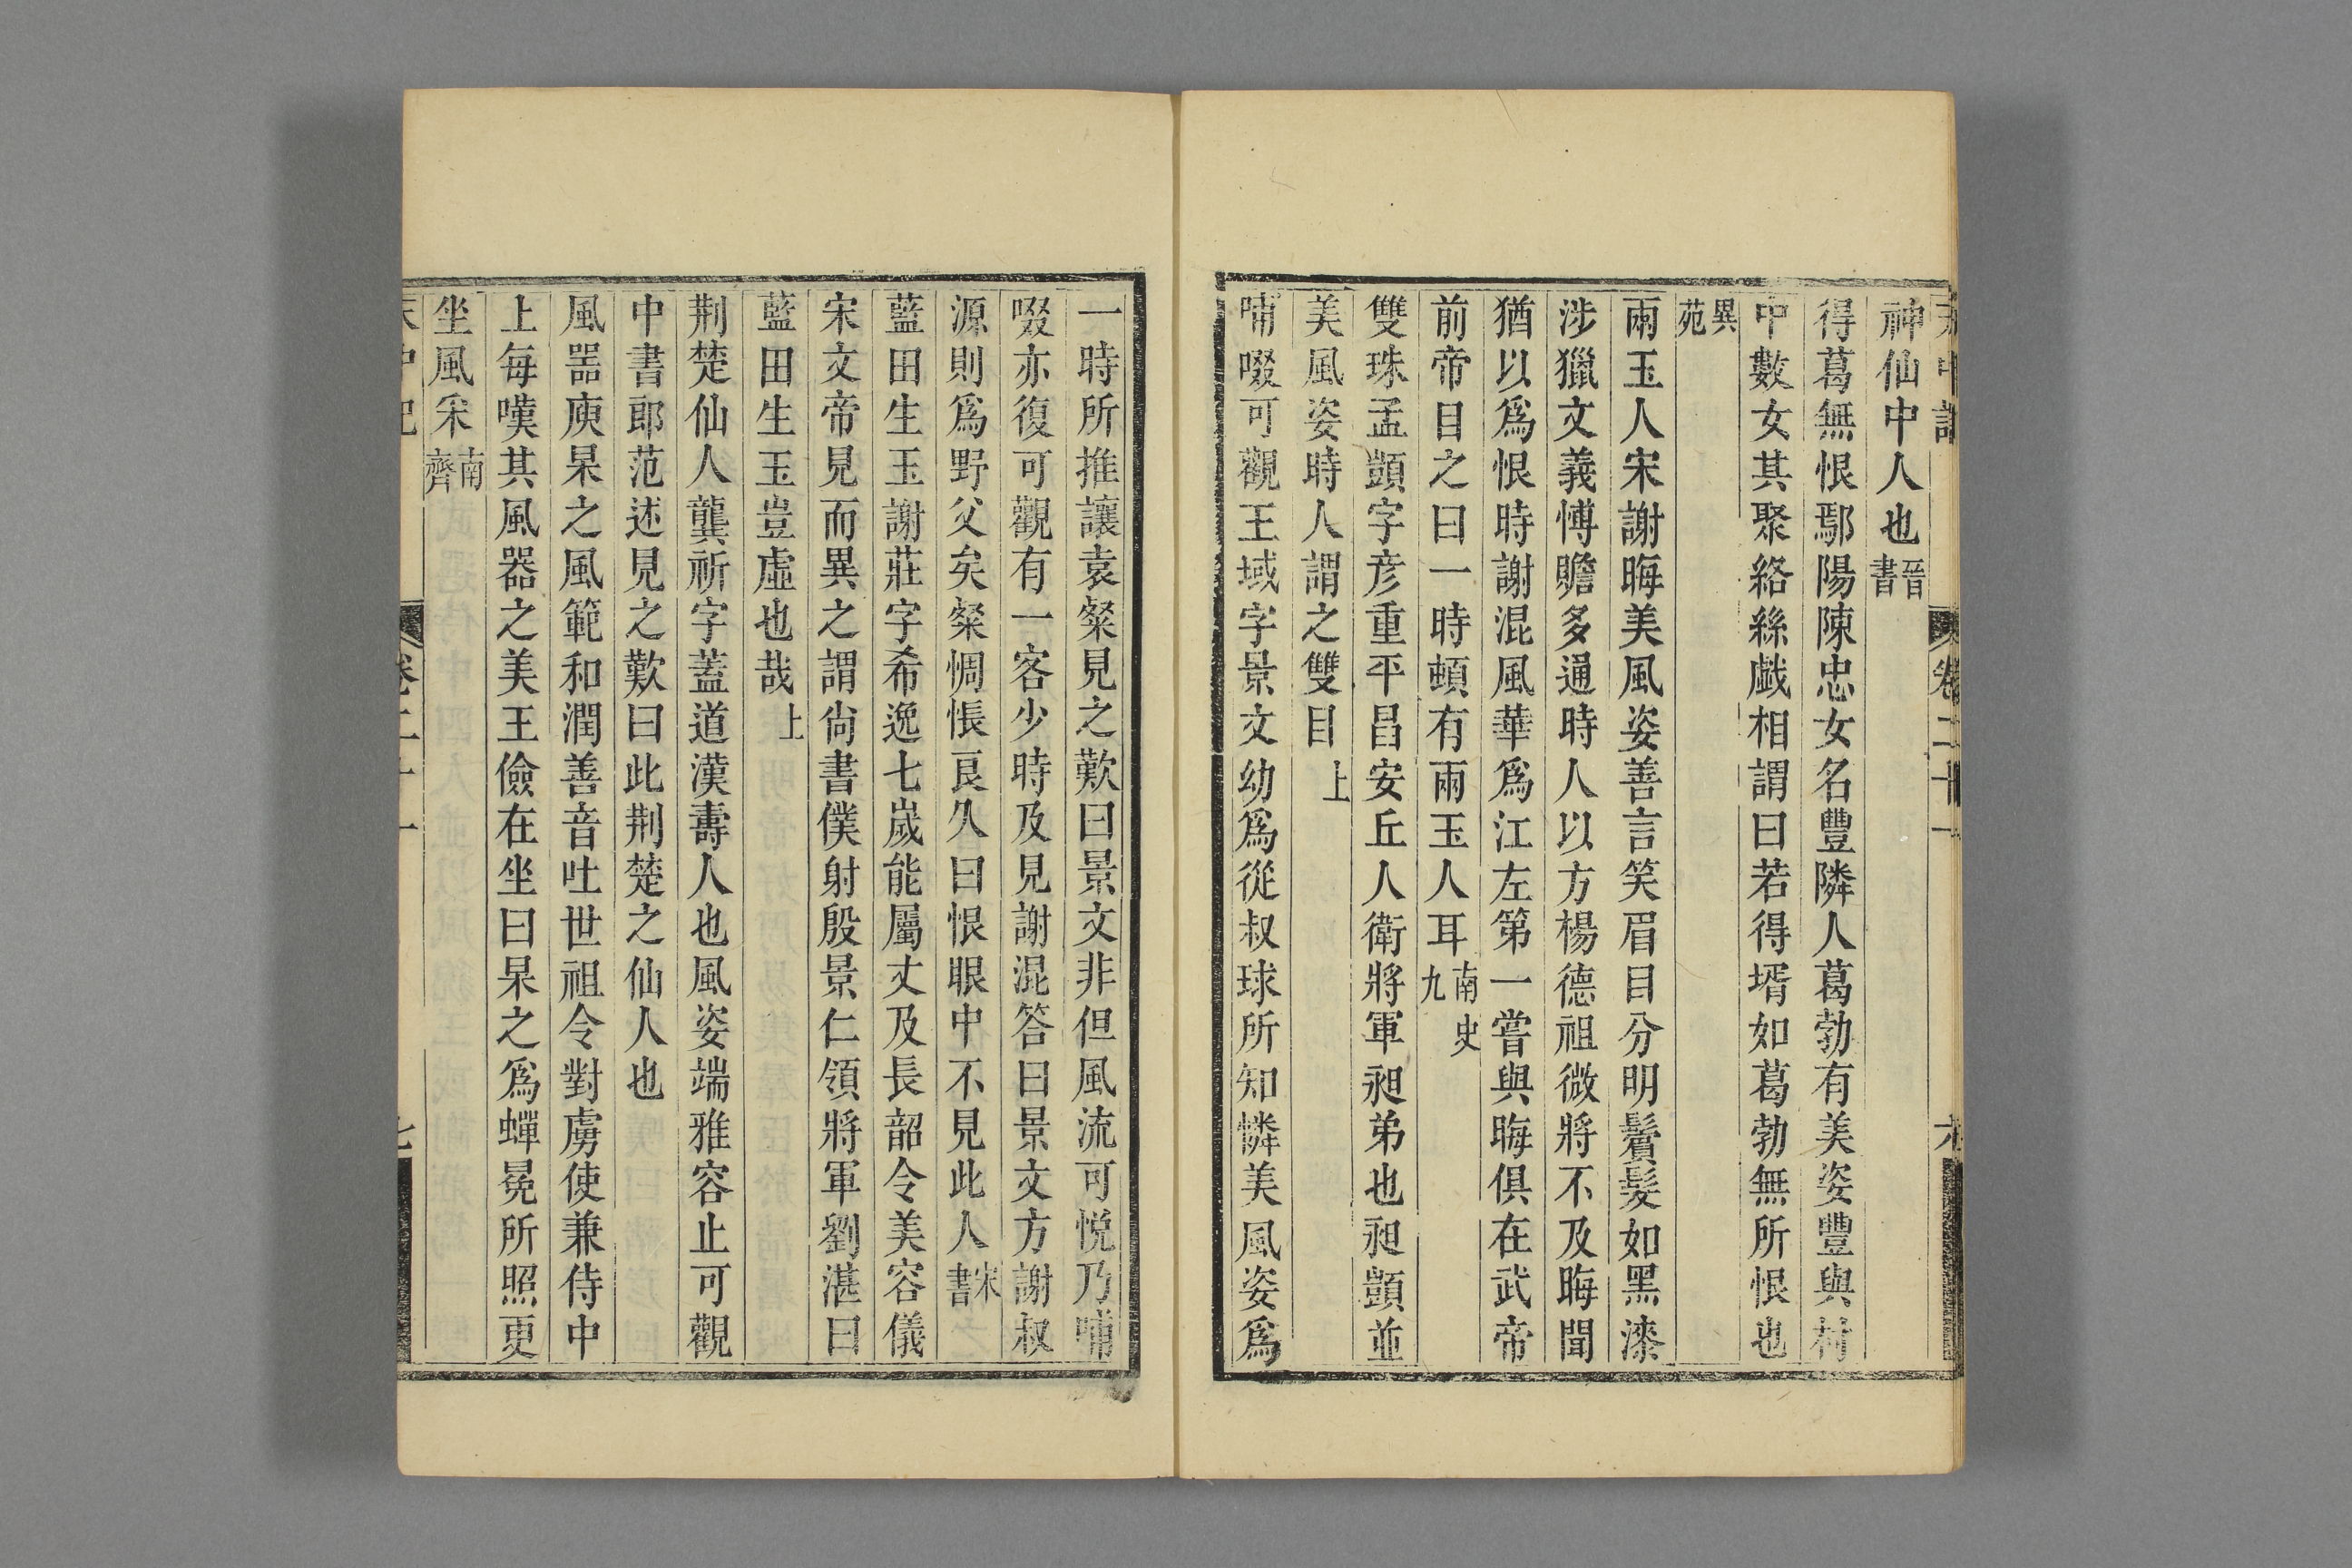 卷二十一
神仙中人也晉書
得葛無恨鄢陽陳忠女名豐隣人葛勃有美姿豐與村
中數女其聚絡絲戲相謂曰若得壻如葛勃無所恨也
異苑
兩玉人宋謝晦美風姿善言笑眉目分明鬢髮如黑漆
涉獵文義愽贍多通時人以方楊德祖微將不及晦聞
猶以爲恨時謝混風華爲江左第一嘗與晦俱在武帝
前帝目之曰一時頓有兩玉人耳南史九
雙珠孟顗字彦重平昌安丘人衛將軍昶弟也昶顗並
美風姿時人謂之雙目上
哺啜可觀王域字景文幼爲從叔球所知憐美風姿爲
一時所推讓袁粲見之歎曰景文非但風流可悦乃哺
啜亦復可觀有一客少時及見謝混答曰景文方謝叔
源則爲野父矣粲惆悵良久曰恨眼中不見此人宋書
藍田生玉謝莊字希逸七歲能屬丈及長韶令美容儀
宋文帝見而異之謂尙書僕射殷景仁領將軍劉湛曰
藍田生玉豈虛也哉上
荆楚仙人龔祈字蓋道漢壽人也風姿端雅容止可觀
中書郎范述見之歎曰此荆楚之仙人也
風噐庾杲之風範和潤善音吐世祖令對虜使兼侍中
上每嘆其風器之美王儉在坐曰杲之爲蟬冕所照更
坐風采南齊
卷二十一
七